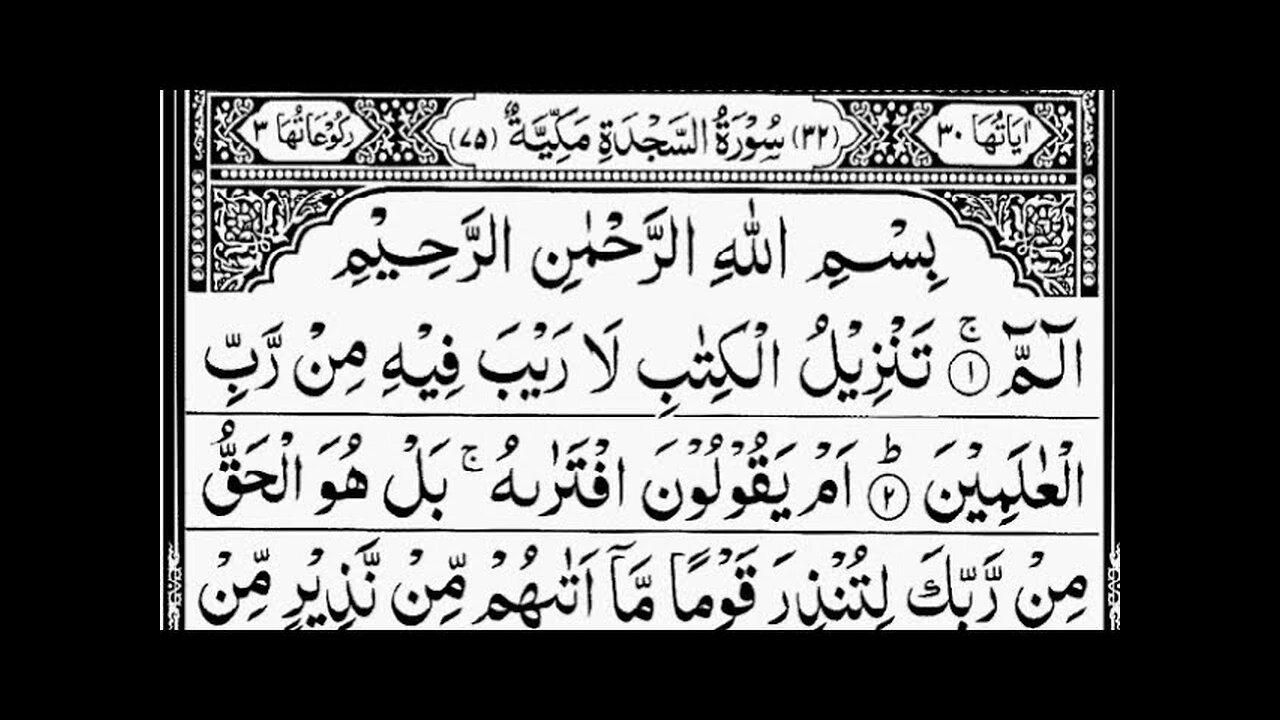 اٰيَاتُهَا ٣٠ (٣٢) سُوْرَةُ السَّجْدَةِ مَكِّيَّةٌ (٧٥) رُكُوْعَاتُهَا ٣
بِسْمِ اللّٰهِ الرَّحْمٰنِ الرَّحِيْمِ
الٓـمّٓ ۚ﴿١﴾ تَنْزِيْلُ الْكِتٰبِ لَا رَيْبَ فِيْهِ مِنْ رَّبِّ
الْعٰلَمِيْنَ ؕ﴿٢﴾ اَمْ يَقُوْلُوْنَ افْتَرٰىهُ ۚ بَلْ هُوَ الْحَقُّ
مِنْ رَّبِّكَ لِتُنْذِرَ قَوْمًا مَّاۤ اَتٰىهُمْ مِّنْ نَّذِيْرٍ مِّنْ